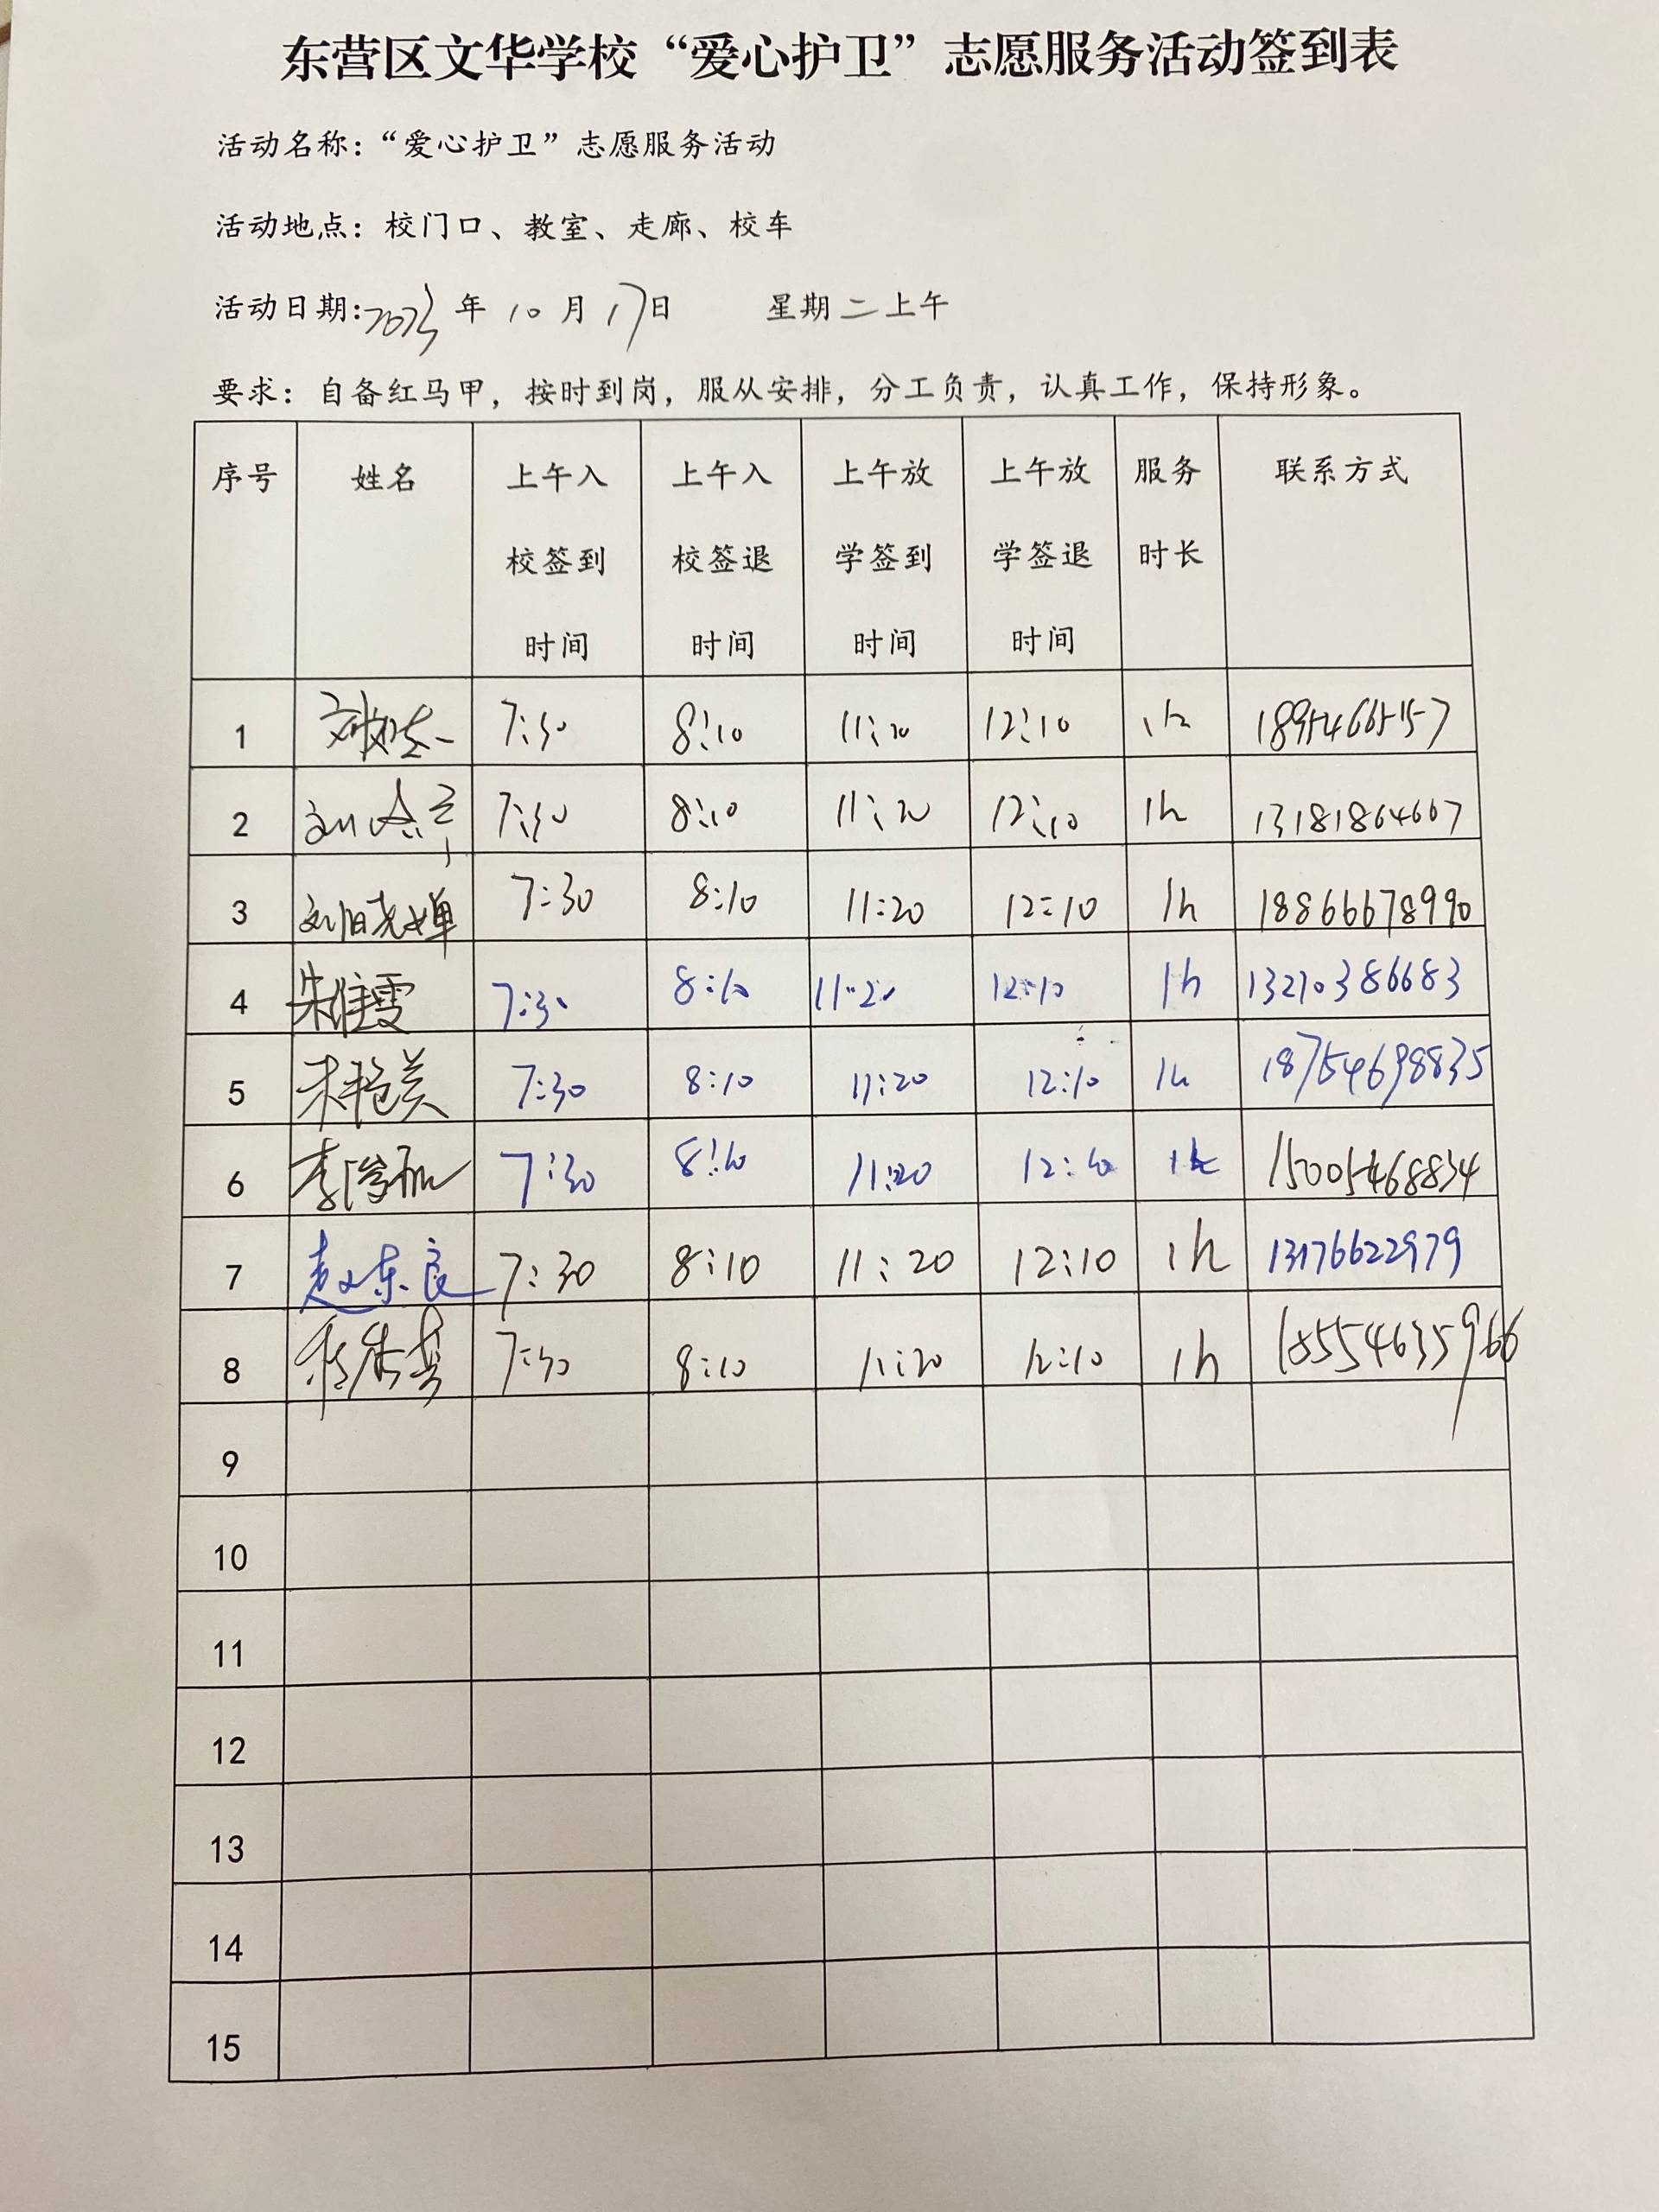 东营区文华学校“爱心护卫”志愿服务活动签到表
活动名称：“爱心护卫”志愿服务活动
活动地点：校门口、教室、走廊、校车
活动日期:2023年10月17日 星期二上午
要求：自备红马甲，按时到岗，服从安排，分工负责，认真工作，保持形象。
序号 姓名 上午入校签到时间 上午入校签退时间 上午放学签到时间 上午放学签退时间 服务时长 联系方式
1 7:30 8:10 11:20 12:10 1h
2 7:30 8:10 11:20 12:10 1h 13181864667
3 刘晓婵 7:30 8:10 11:20 12:10 1h 18866678990
4 朱維雯 7:30 8:10 11:20 12:10 1h 13210386683
5 7:30 8:10 11:20 12:10 1h 18754698835
6 7:30 8:10 11:20 12:10 1h 15005468834
7 赵东良 7:30 8:10 11:20 12:10 1h 13176622979
8 7:30 8:10 11:20 12:10 1h 18554635966
9
10
11
12
13
14
15